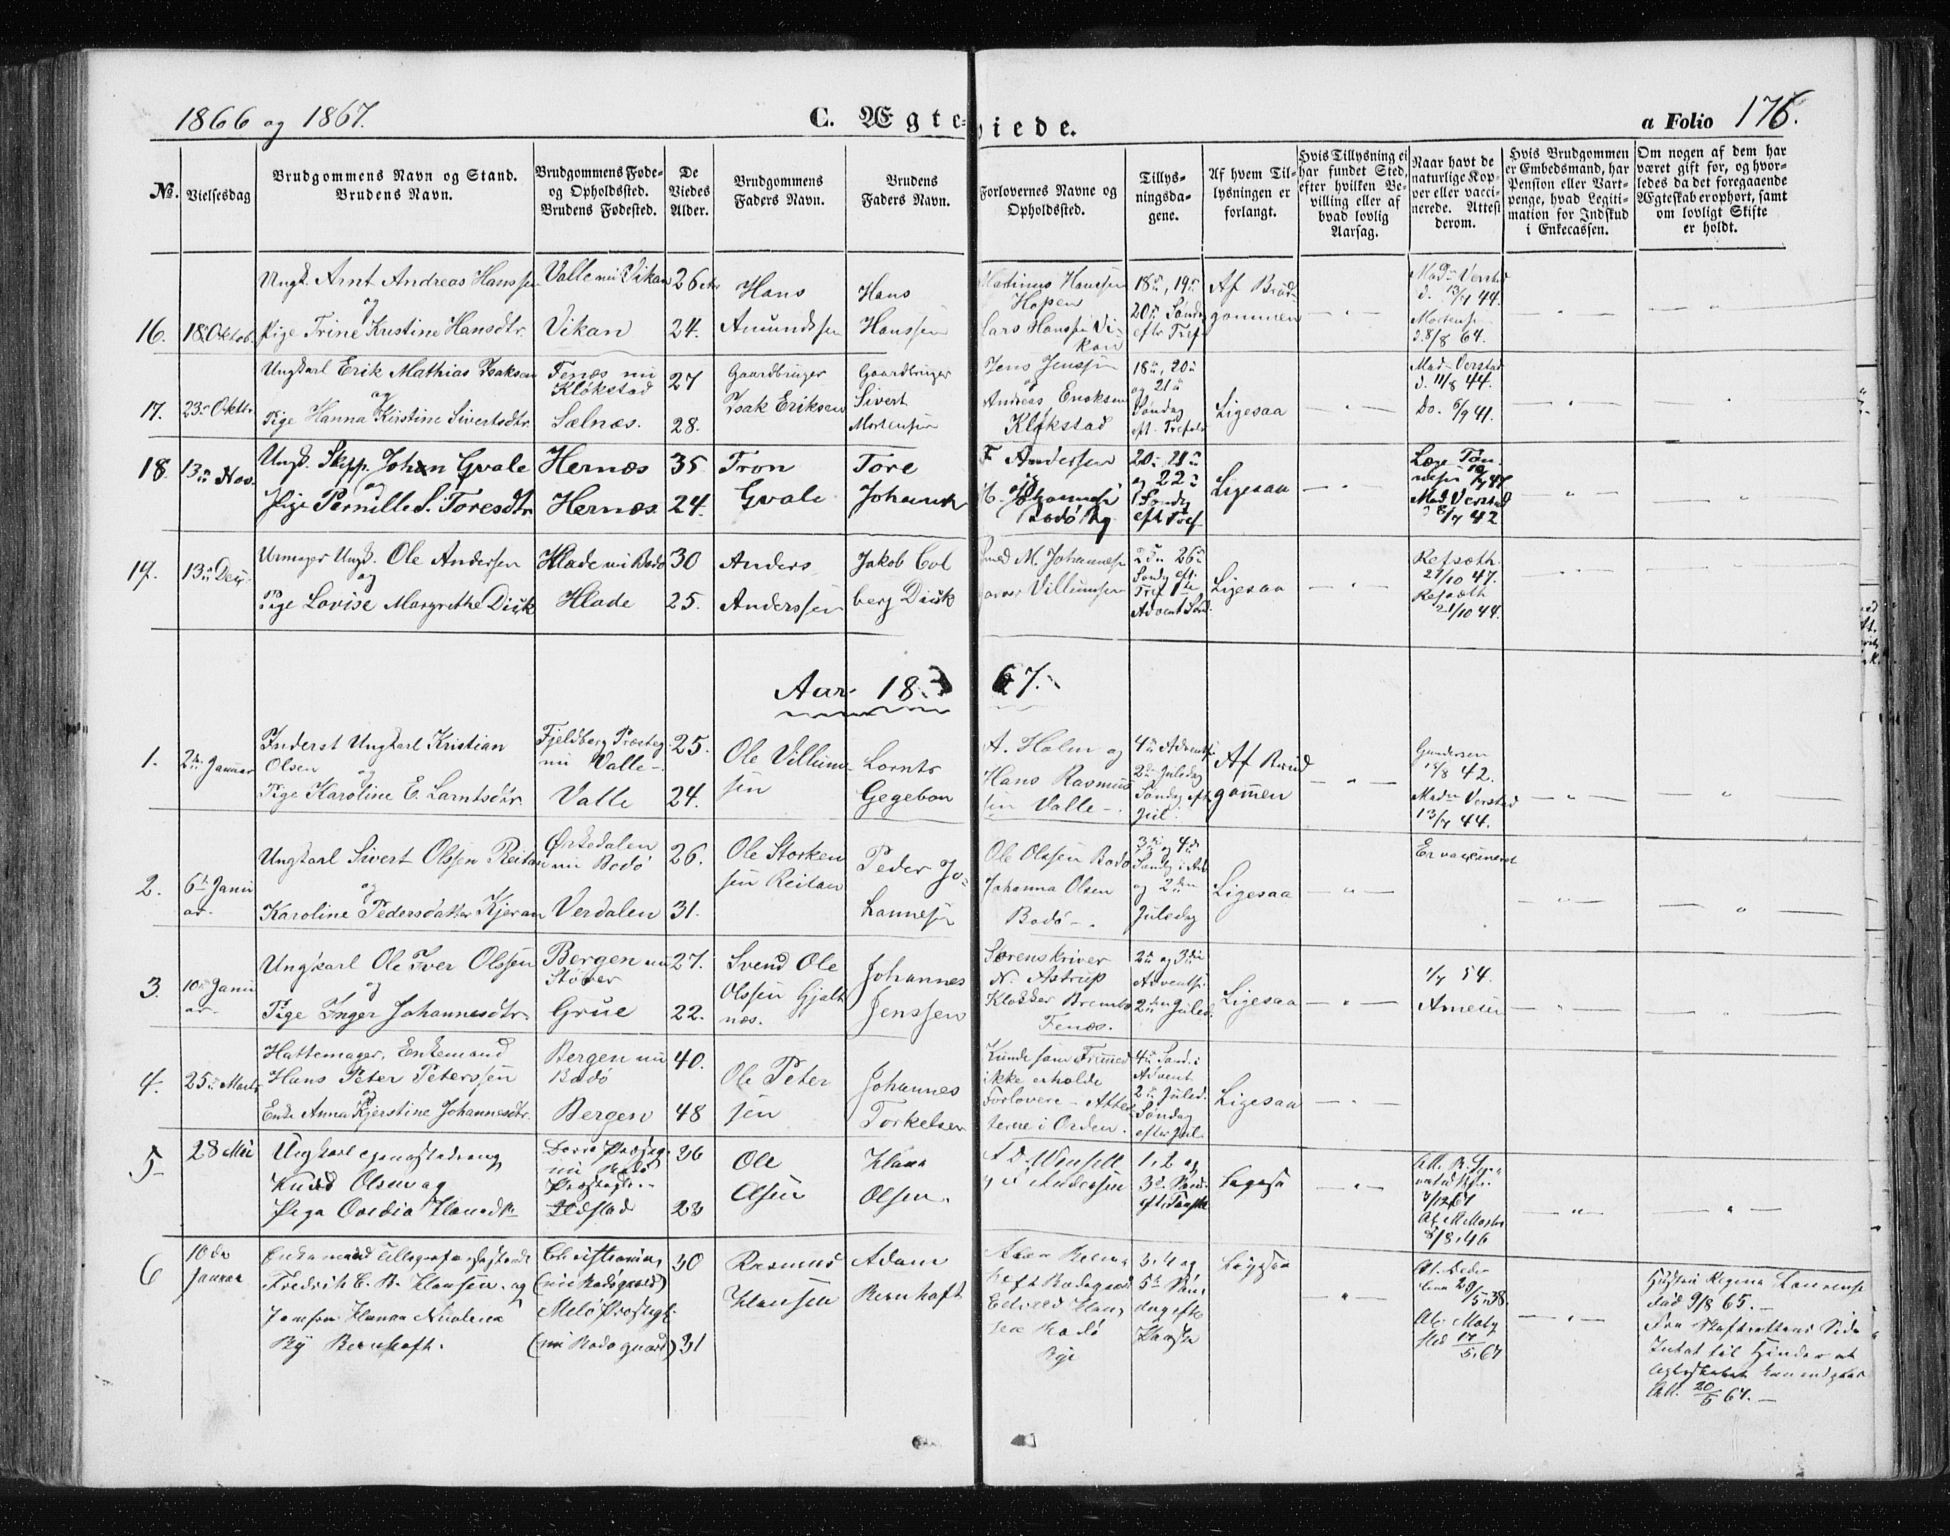 1866 og 1867.
C. Ægteviede.
a Folio 176.
No.
Vielsesdag
Brudgommens Navn og Stand.
Brudens Navn.
Brudgommens Føde-
og Opholdssted.
Brudens Fødested.
De
Viedes
Alder.
Brudgommens
Faders Navn.
Brudens
Faders Navn.
Forlovernes Navne og
Opholdssted.
Tillys-
ningsda-
gene.
Af hvem Til-
lysningen er
forlangt.
Hvis Tillysning ei
har fundet Sted,
efter hvilken Be-
villing eller af
hvad lovlig
Aarsag.
Naar havt de
naturlige Kop-
per eller vacci-
nerede. Attest
derom.
Hvis Brudgommen
er Embedsmand, har
Pension eller Vart-
penge, hvad Legiti-
mation for Indskud
i Enkecassen.
Om nogen af dem har
været gift før, og hvor-
ledes da det foregaaende
Ægteskab er ophørt, samt
om lovligt Skifte
er holdt.
16. 18 Oktob.
Ungk. Arnt Andreas Hanssen
og
Pige Trine Kristine Hansdtr.
Valle nu Vikan
Vikan
26
24.
Hans
Amundsen
Hans
Hanssen
Hanssen
Hopen
Lars Hanssen Vi-
kan
18de, 19de
20de Søndag
eftr Tref
Af Brud-
gommen
Mad. Verstad
d. 13/7 44.
Mortensen
d. 8/8 64.
17. 23de Oktr.
Ungkarl Erik Mathias Isaksen
og
Pige Hanna Kirstine Sivertsdtr.
Fenæs nu
Kløkstad
Sælnæs.
27
28.
Gaardbruger
Isak Eriksen
Gaardbruger
Sivert
Mortensen
Jens Jensen
og
Andreas Eriksen
Kløkstad
18de, 20de
og 21de
Søndag
eft. Trefol.
Ligesaa
Mad. Verstad
d. 11/8 44.
Do. 6/9 41.
18. 13de Nov.
Ungk. Skipp. Johan Gvale
og
Pige Pernille S. Toresdtr.
Hernæs
Hernæs.
35
24.
Tron
Gvale
Tore
Johansen
F. Andersen
og
H. Johannesen
Bodø
20de 21de
og 22de
Søndag
eftr Tref.
Ligesaa
Mad. Verstad
8/7 42
19. 13de Dec.
Urmager Ungk. Ole Andersen
og
Pige Lovise Margrethe Disk
Hlade nu Bodø
Hlade
30
25.
Anders
Anderssen
Jakob Col
berg Disk
Smed M. Johannesen
Villumsen
25de 26de
Søndg eft.
Tref 1ste
Advent Sønd.
Ligesaa
Refsæth
21/10 47.
Refsæth
21/10 44.
Aar 1867.
1. 2de Januar
Inderst Ungkarl Kristian
Olsen
og
Pige Karoline E. Larntsdtr.
Fjeldberg Præsteg.
nu Valle
Valle
25.
24.
Ole Villum-
sen
Lornts
Gegebon
A. Holm og
Hans Rasmus
sen Valle
4de Advents.
2den Juledag
Søndag eft.
Jul.
Af Brud
gommen
Gundersen
15/8 42.
Mad. Verstad
13/7 44.
2. 6te Janu
ar.
Ungkarl Sivert Olssen Reitan
og
Karoline Pedersdatter Kjeran
Ørkedalen
nu Bodø
Verdalen
26.
31.
Ole Storken
sen Reitan
Peder Jo-
hannesen
Ole Olssen Bodø
Johanna Olsen
Bodø
3die og 4de
Søndag i Ad.
og 2den
Juledag
Ligesaa
Er vaccineret
3. 10de Janu
ar.
Ungkarl Ole Iver Olssen
og
Pige Inger Johannesdtr.
Bergen nu
Støver
Grue
27.
22.
Svend Ole
Olssen Gjelt
næs.
Johannes
Jenssen
Sorenskriver
N. Astrup
Klokker Brembo
Fenæs.
2den og 3die
Adventss.
2den Juled.
Ligesaa
1/7 54.
4. 25de Marts
Hattemager, Enkemand
Hans Peter Peterssen
og
Enke Anna Kjerstine Johannesdtr.
Bergen nu
Bodø
Bergen
40.
48
Ole Peter
sen
Johannes
Torkelsen
Kunde som Fremmed
ikke erholde
Forlovere - Attes
terne i Orden.
4de Sønd. i
Advent.
2den Juled.
Søndag
efter Jul.
Ligesaa
5 28 Mai
Ungkarl
Knud Olsen og
Pige Ovedia Hansdtr
nu Bodø
Præstegj.
36
23
Ole
Olsen
Hans
Olsen.
Andersen
1, 2 og
3de Sønd.
Ligesaa
3/12 67
8/8 46
6 10de
Januar
Enkemand
Fredrik C. B. Klausen og
Jomfru Hanna Nicoline
By Bernhoft.
Christiania,
(nu Bodøgaard)
Melø Præstegj.
(nu Bodøgaard)
30
31
Rasmus
Klausen
Adam
Bernhoft
Bodøgaard
Bodø
3, 4 og
5te Søn
dag eft.
Paaske
Ligesaa
29/5 38.
17/5 67
Hustru Regina Laurense
død 9/8 65.
Fra Skifterettens Side
Intet til Hinder at
20/5 67.